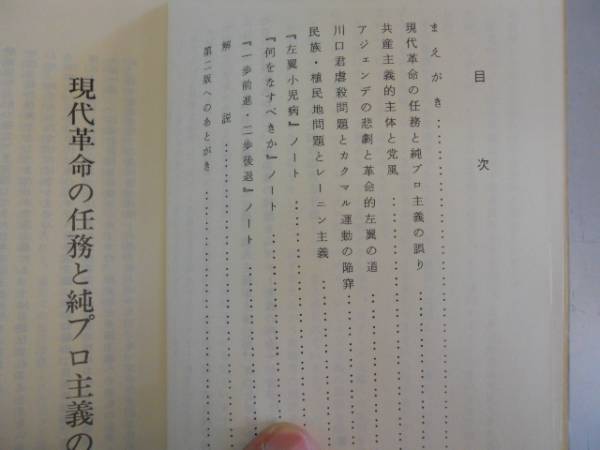 目次
まえがき
現代革命の任務と純プロ主義の誤り
共産主義的主体と党風
アジェンデの悲劇と革命的左翼の道
川口君虐殺問題とカクマル運動の陥穽
民族・植民地問題とレーニン主義
『左翼小児病』ノート
『何をなすべきか』ノート
『一歩前進・二歩後退』ノート
解説
第二版へのあとがき
現代革命の任務と純プロ主義の